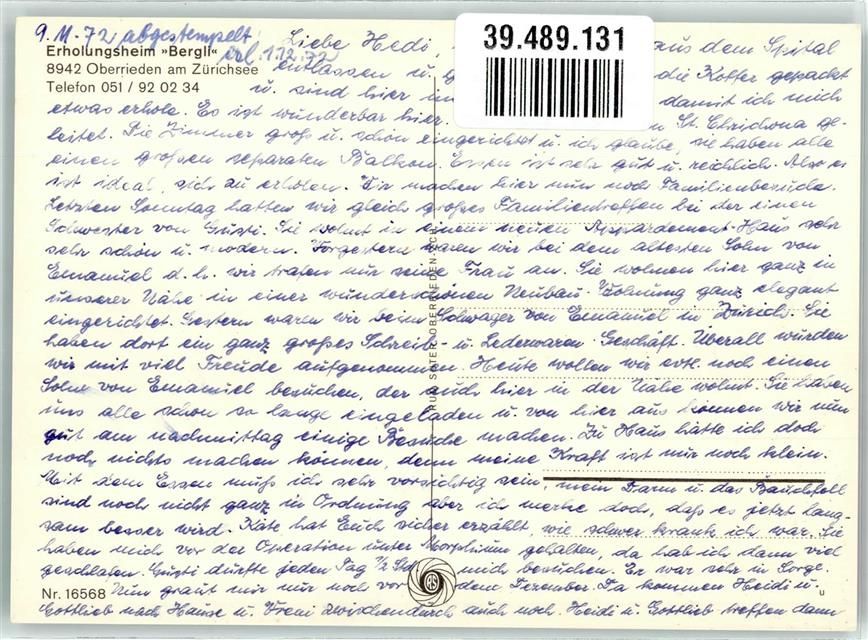 9. 11. 72 abgestempelt
erl. 1.12.72
Erholungsheim »Bergli«
8942 Oberrieden am Zürichsee
Telefon 051 / 92 02 34
39.489.131
Liebe Hedi, aus dem Spital
entlassen u. die Koffer gepackt
u. sind hier damit ich mich
etwas erhole. Es ist wunderbar hier. St. Chrischona ge-
leitet. Die Zimmer groß u. schön eingerichtet u. ich glaube, sie haben alle
einen großen separaten Balkon. Essen ist sehr gut u. reichlich. Also es
ist ideal, sich zu erholen. Wir machen hier nun noch Familienbesuche.
Letzten Sonntag hatten wir gleich großes Familientreffen bei der einen
Schwester von Gusti. Sie wohnt in einem neuen Appardement-Haus sehr
sehr schön u. modern. Vorgestern waren wir bei dem ältesten Sohn von
Emanuel d. h. wir trafen nur seine Frau an. Sie wohnen hier ganz in
unserer Nähe in einer wunderschönen Neubau-Wohnung ganz elegant
eingerichtet. Gestern waren wir beim Schwager von Emanuel in Zürich. Sie
haben dort ein ganz großes Schreib- u. Lederwaren-Geschäft. Überall wurden
wir mit viel Freude aufgenommen. Heute wollen wir evtl. noch einen
Sohn von Emanuel besuchen, der auch hier in der Nähe wohnt. Sie haben
uns alle schon so lange eingeladen u. von hier aus können wir nun
gut am nachmittag einige Besuche machen. Zu Haus hätte ich doch
noch nichts machen können, denn meine Kraft ist nur noch klein.
Mit dem Essen muß ich sehr vorsichtig sein, mein Darm u. das Bauchfell
sind noch nicht ganz in Ordnung aber ich merke doch, daß es jetzt lang-
sam besser wird. Käte hat Euch sicher erzählt wie schwer krank ich war. Sie
haben mich vor der Operation unter Morphium gehalten, da hab ich dann viel
geschlafen. Gusti durfte jeden Tag ½ Std mich besuchen. Er war sehr in Sorge.
Nr. 16568 Nun graut mir nur noch vor dem Dezember. Da kommen Heidi u.
Gottlieb nach Hause u. Vreni zwischendurch auch noch. Heidi u. Gottlieb treffen dann